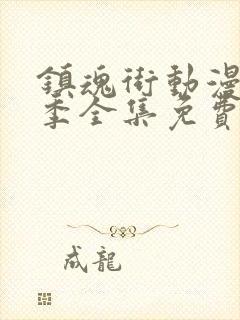 鎮魂街動漫
季全集免費
成龍